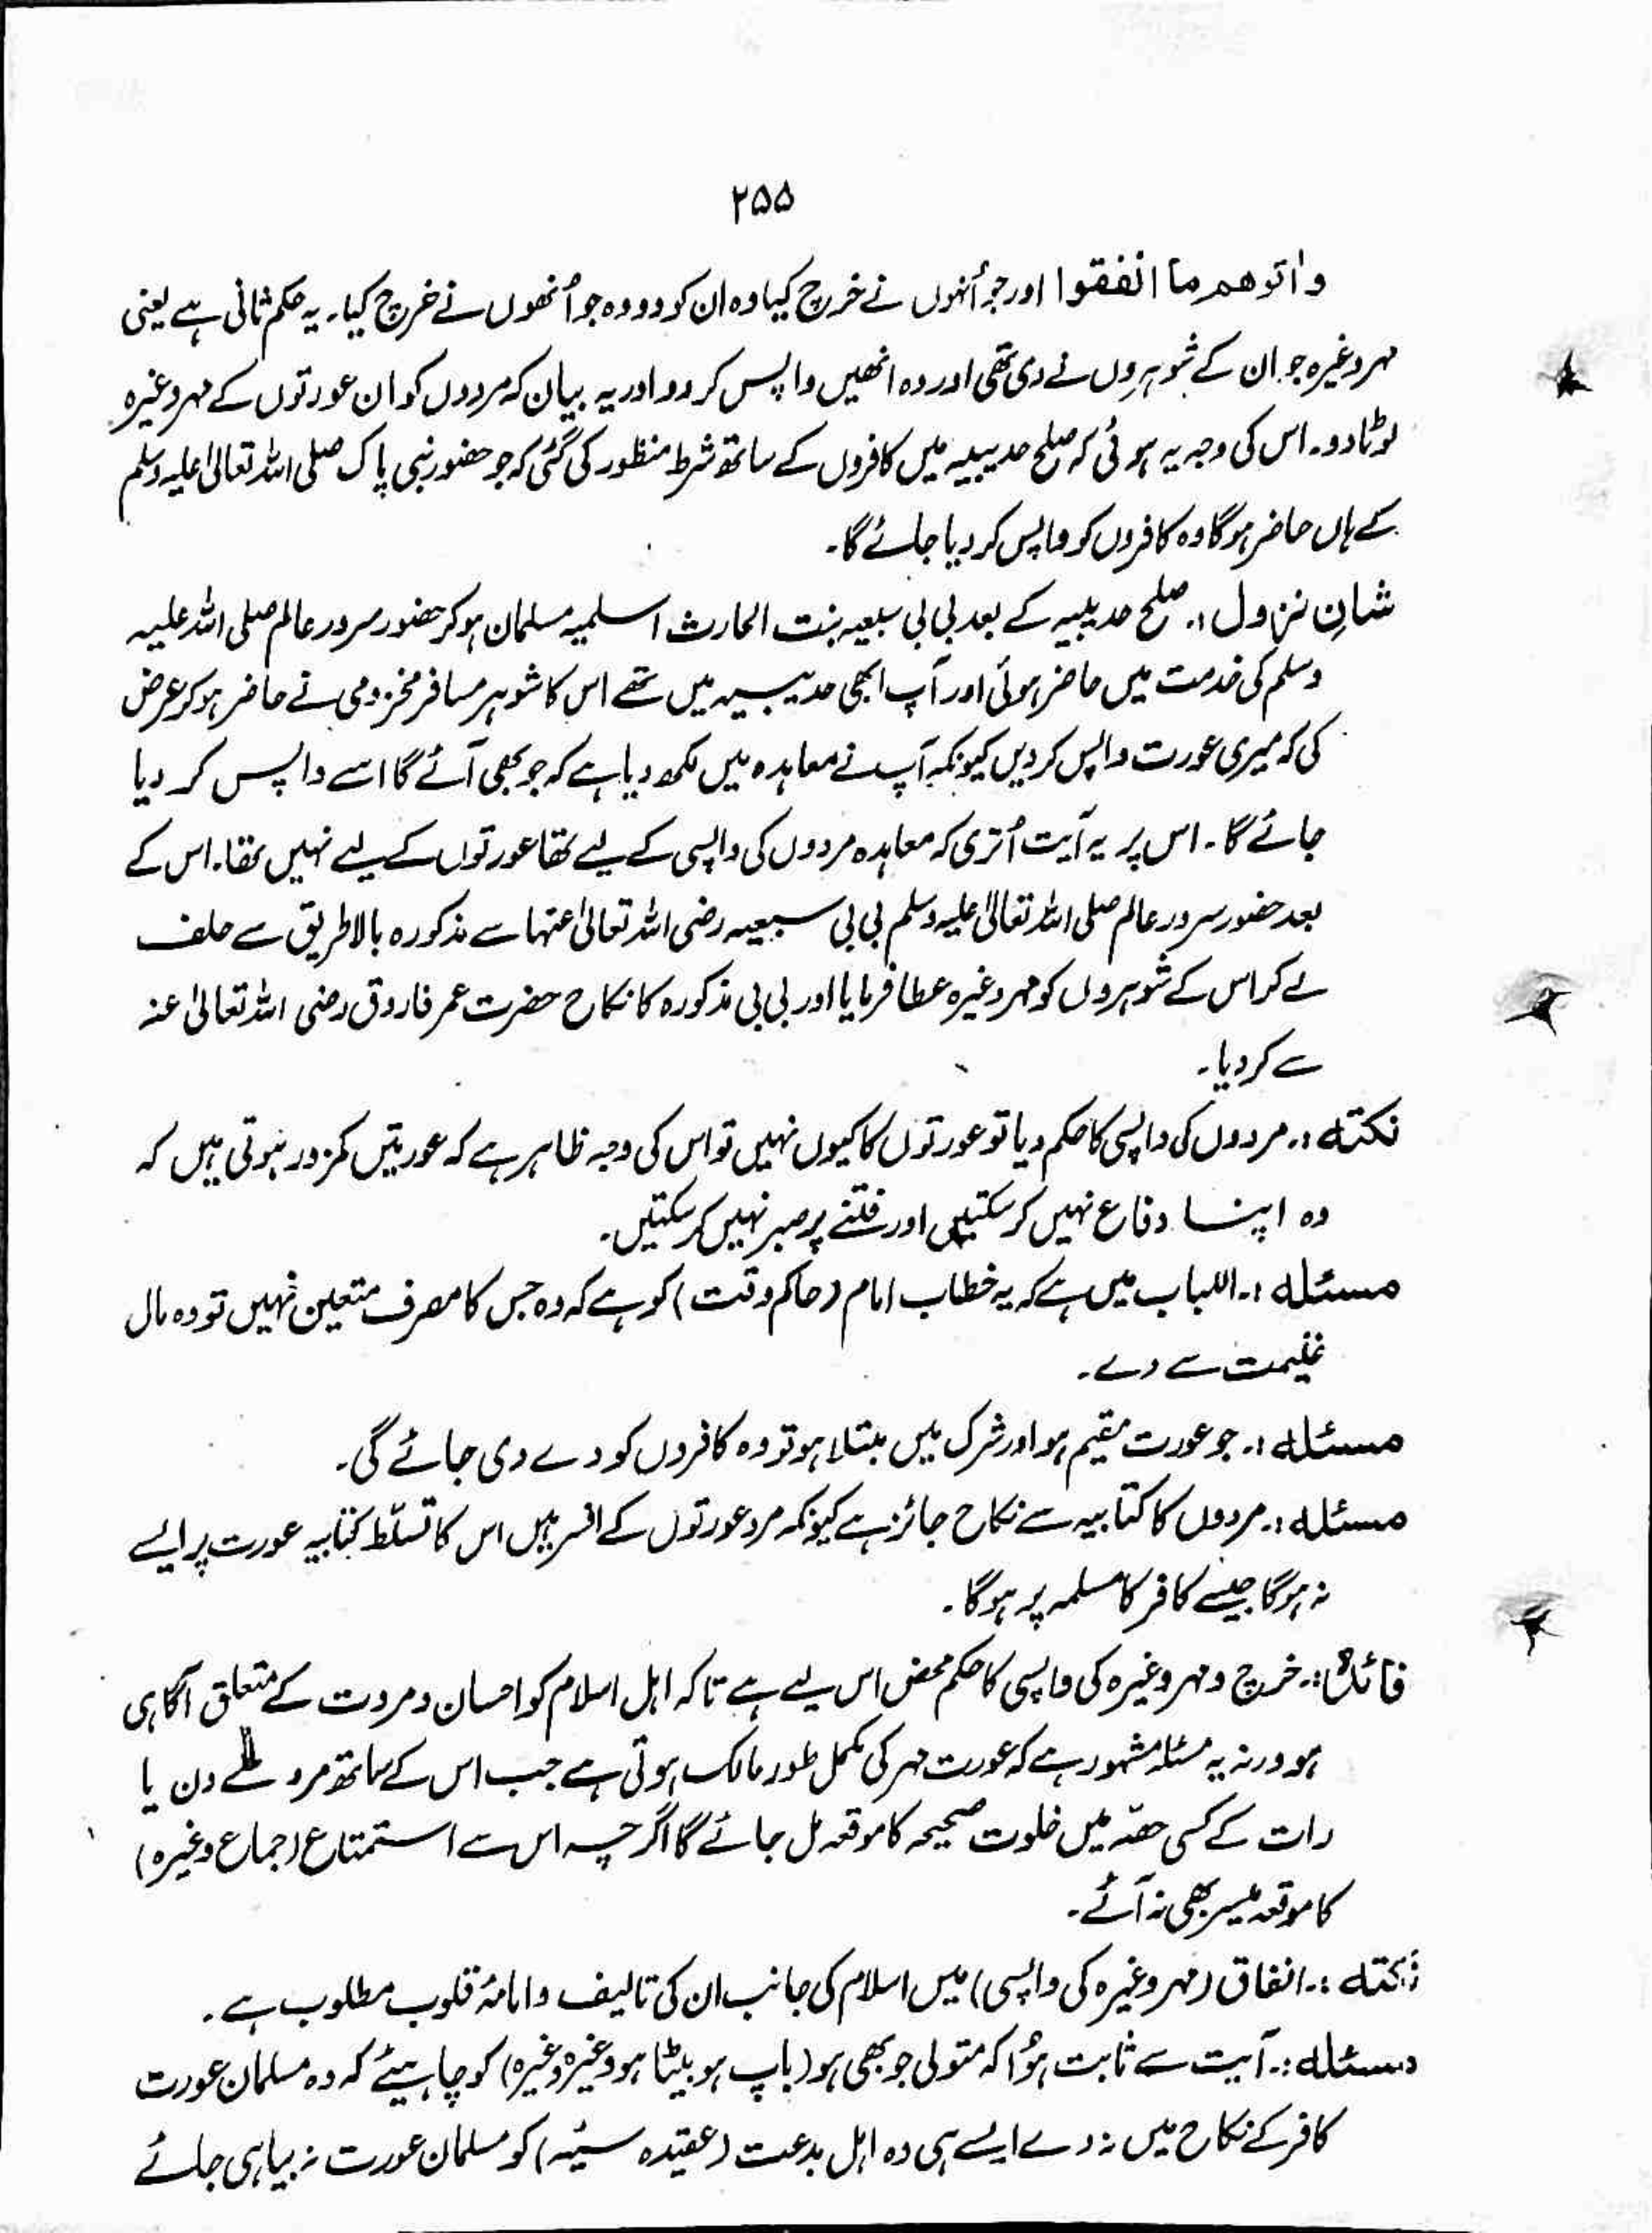 ۲۵۵
واٰتوھم ما انفقوا اور جو اُنہوں نے خرچ کیا وہ ان کو دو وہ جو اُنھوں نے خرچ کیا۔ یہ حکم ثانی ہے یعنی
مہر وغیرہ جو ان کے شوہروں نے دی تھی اور وہ انھیں واپس کر دو اور یہ بیان کہ مردوں کو ان عورتوں کے مہر وغیرہ
لوٹا دو۔ اس کی وجہ یہ ہوئی کہ صلح حدیبیہ میں کافروں کے ساتھ شرط منظور کی گئی کہ جو حضور نبی پاک صلی اللہ تعالیٰ علیہ وسلم
کے ہاں حاضر ہوگا وہ کافروں کو واپس کر دیا جائے گا۔
شانِ نزول :۔ صلح حدیبیہ کے بعد بی بی سبعیہ بنت الحارث اسلمیہ مسلمان ہو کر حضور سرور عالم صلی اللہ علیہ
وسلم کی خدمت میں حاضر ہوئی اور آپ ابھی حدیبیہ میں تھے اس کا شوہر مسافر مخزومی نے حاضر ہو کر عرض
کی کہ میری عورت واپس کر دیں کیونکہ آپ نے معاہدہ میں لکھ دیا ہے کہ جو بھی آئے گا اسے واپس کر دیا
جائے گا۔ اس پر یہ آیت اُتری کہ معاہدہ مردوں کی واپسی کے لیے تھا عورتوں کے لیے نہیں تھا۔ اس کے
بعد حضور سرور عالم صلی اللہ تعالیٰ علیہ وسلم بی بی سبعیہ رضی اللہ تعالیٰ عنہا سے مذکورہ بالا طریق سے حلف
لے کر اس کے شوہروں کو مہر وغیرہ عطا فرمایا اور بی بی مذکورہ کا نکاح حضرت عمر فاروق رضی اللہ تعالیٰ عنہ
سے کر دیا۔
نکتہ :۔ مردوں کی واپسی کا حکم دیا تو عورتوں کا کیوں نہیں تو اس کی وجہ ظاہر ہے کہ عورتیں کمزور ہوتی ہیں کہ
وہ اپنا دفاع نہیں کر سکتیں اور فتنے پر صبر نہیں کر سکتیں۔
مسئلہ :۔ اللباب میں ہے کہ یہ خطاب امام (حاکم وقت) کو ہے کہ وہ جس کا مصرف متعین نہیں تو وہ مال
غنیمت سے دے۔
مسئلہ :۔ جو عورت مقیم ہو اور شرک میں مبتلا ہو تو وہ کافروں کو دے دی جائے گی۔
مسئلہ :۔ مردوں کا کتابیہ سے نکاح جائز ہے کیونکہ مرد عورتوں کے افسر ہیں اس کا تسلّط کتابیہ عورت پر ایسے
نہ ہوگا جیسے کافر کا مسلمہ پر ہوگا۔
فائدہ :۔ خرچ و مہر وغیرہ کی واپسی کا حکم محض اس لیے ہے تاکہ اہل اسلام کو احسان و مروت کے متعلق آگاہی
ہو ورنہ یہ مسئلہ مشہور ہے کہ عورت مہر کی مکمل طور مالک ہوتی ہے جب اس کے ساتھ مرد دن یا
رات کے کسی حصّہ میں خلوت صحیحہ کا موقعہ مل جائے گا اگرچہ اس سے استمتاع (جماع وغیرہ)
کا موقعہ میسر بھی نہ آئے۔
نکتہ :۔ انفاق (مہر وغیرہ کی واپسی) میں اسلام کی جانب ان کی تالیف و امالۂ قلوب مطلوب ہے۔
مسئلہ :۔ آیت سے ثابت ہؤا کہ متولی جو بھی ہو (باپ ہو بیٹا ہو وغیرہ وغیرہ) کو چاہیئے کہ وہ مسلمان عورت
کافر کے نکاح میں نہ دے ایسے ہی وہ اہل بدعت (عقیدہ سیّئہ) کو مسلمان عورت نہ بیاہی جائے